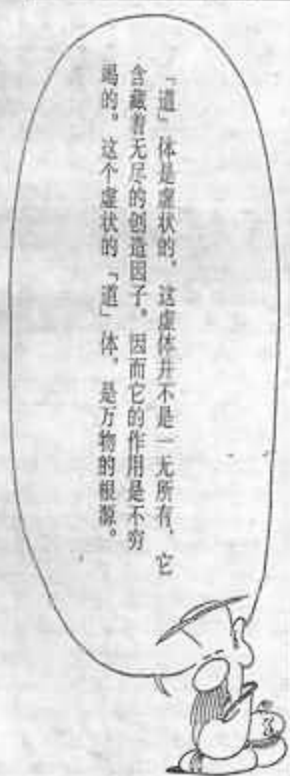 「道」体是虚状的，这虚体并不是一无所有，它
含藏着无尽的创造因子。因而它的作用是不穷
竭的。这个虚状的「道」体，是万物的根源。